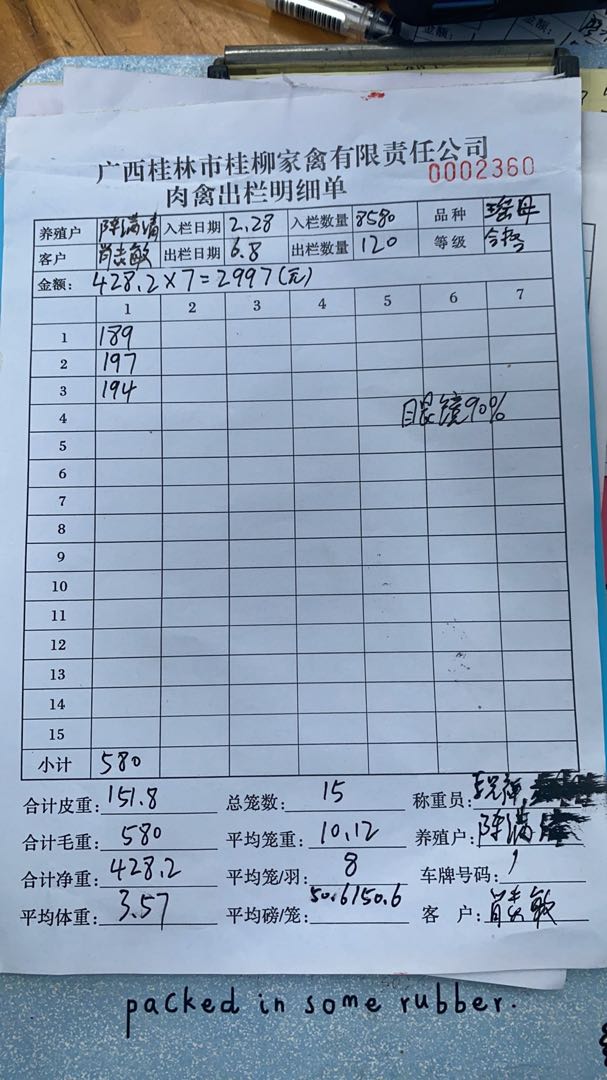 广西桂林市桂柳家禽有限责任公司
肉禽出栏明细单 0002360
养殖户 陈满清 入栏日期 2.28 入栏数量 8580 品种 瑶母
客户 肖志敏 出栏日期 6.8 出栏数量 120 等级 合格
金额: 428.2×7=2997(元)
1 2 3 4 5 6 7
1 189
2 197
3 194
4 眼镜90%
5
6
7
8
9
10
11
12
13
14
15
小计 580
合计皮重: 151.8 总笼数: 15 称重员:
合计毛重: 580 平均笼重: 10.12 养殖户: 陈满清
合计净重: 428.2 平均笼/羽: 8 车牌号码: /
平均体重: 3.57 平均磅/笼: 50.6/50.6 客 户: 肖志敏
packed in some rubber.